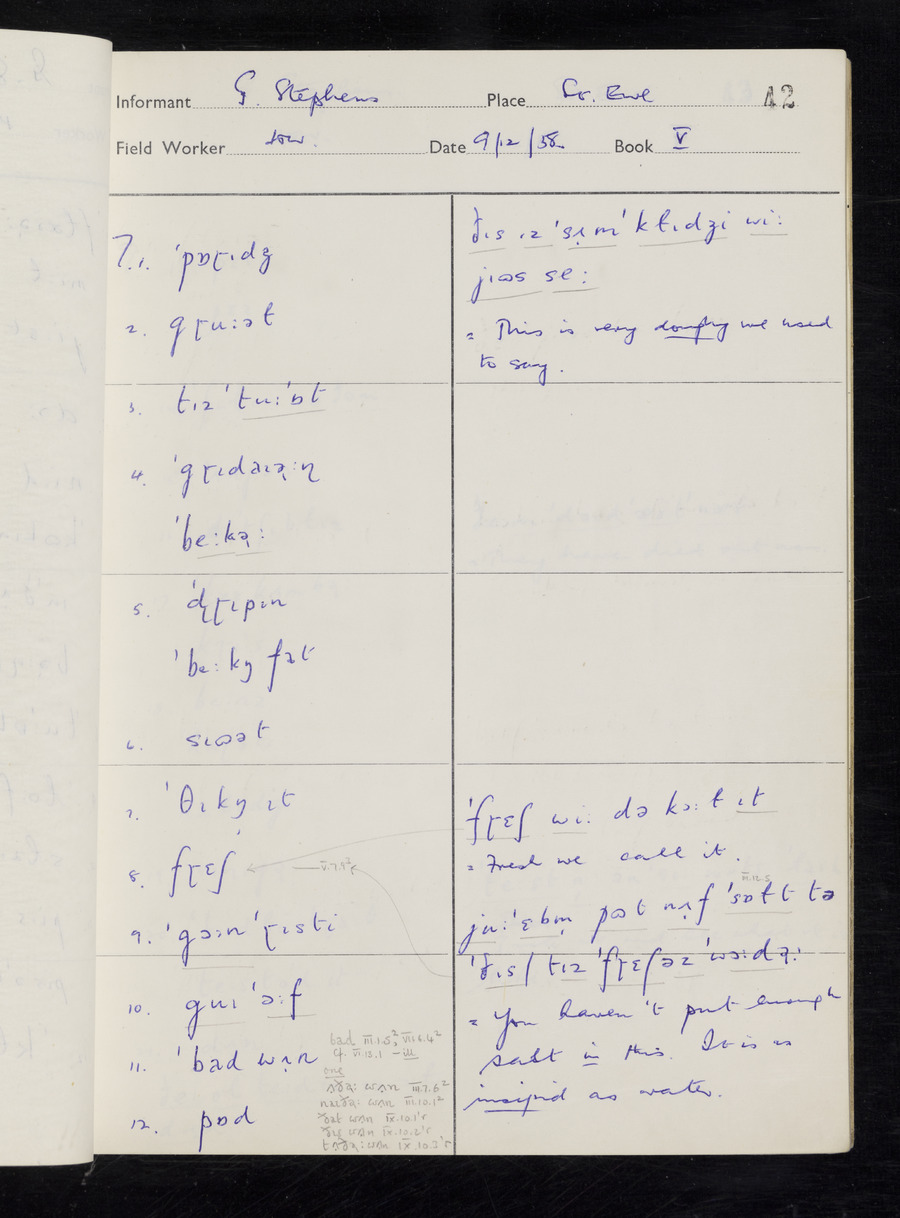 Informant G. Stephens Place St. Ewe 42
Field Worker Date 9/12/58 Book V
7.1. ˈpɒɽɪdʒ
2. gɽu:ət
3. tɪz ˈtu:ˈɒt
4. ˈgɽɪdəɪə̣:ɳ
ˈbe:kə̣:
5. ˈɖɽɪpɪn
ˈbe:kŋ fət
6. sɩɷət
7. ˈθɪkŋ ɪt
8. fɽɛʃ
V.7.9²
9. ˈgɔ:n ˈɽɪsti
10. guɪ ˈɔ:f
11. ˈbad wʌ̣n
bad III.1.5², VII.6.4²
cf. VI.13.1 – ill
one
III.7.6²
III.10.1²
IX.10.1'r
IX.10.2'r
IX.10.3'r
12. pɒd
ðɪs ɪz ˈsʌ̣m ˈkɫɪdʒi wi:
jɩɷs se:
= This is very doughy we used
to say.
ˈfɽɛʃ wi: də kɔ:ɫ ɪt
= Fresh we call it.
VI.12.5
ju: ˈɛbm̩ pɷt nʌ̣f ˈsɒɫt tə
ˈðɪs / tɪz ˈfɽɛʃ əz ˈwɔ:də̣:
= You haven't put enough
salt in this. It is as
insipid as water.